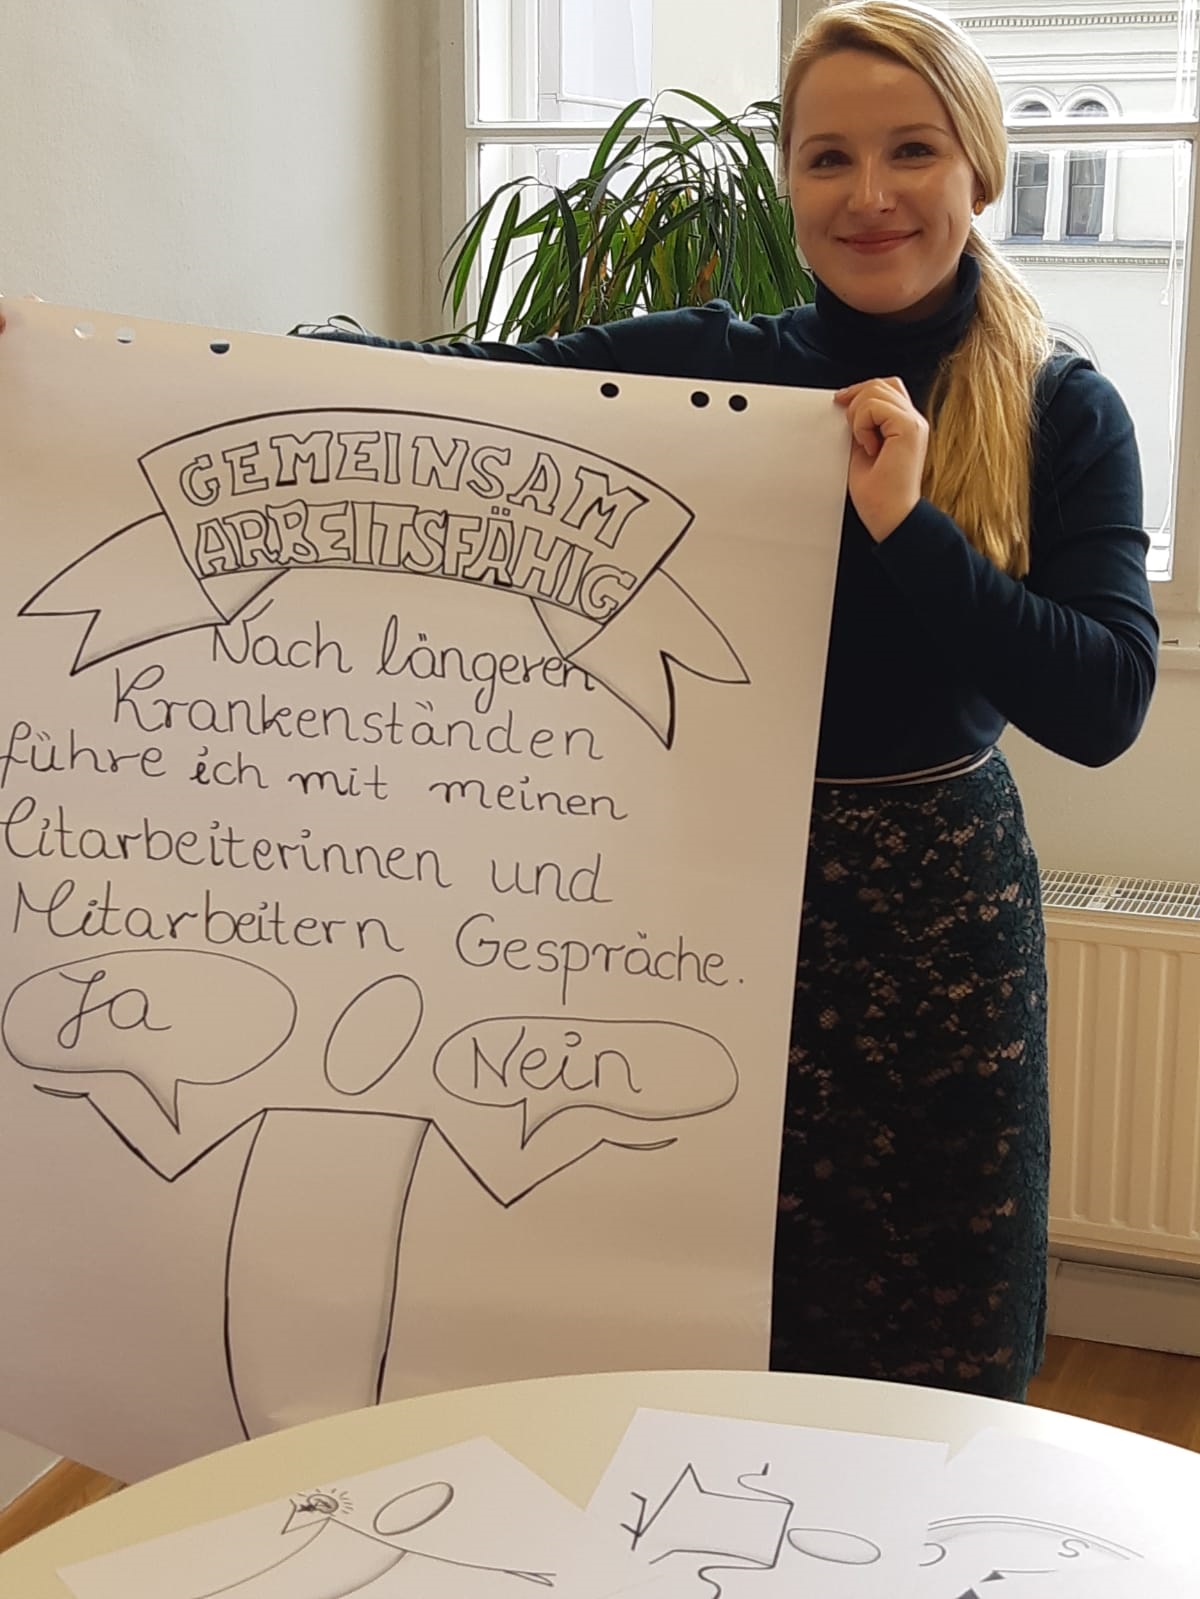 GEMEINSAM
ARBEITSFÄHIG
Nach längeren
Krankenständen
führe ich mit meinen
Mitarbeiterinnen und
Mitarbeitern Gespräche.
Ja
Nein